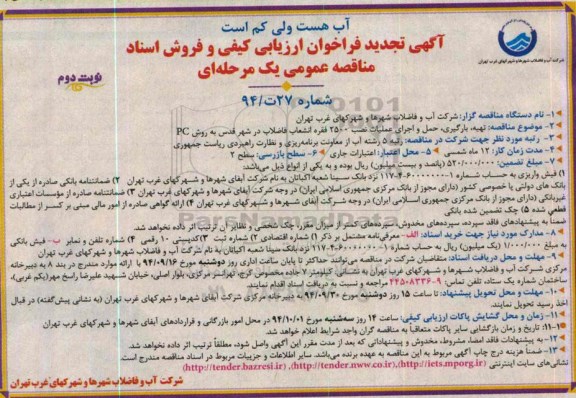 آب هست ولی کم است
آگهی تجدید فراخوان ارزیابی کیفی و فروش اسناد
مناقصه عمومی یک مرحله‌ای
شماره ۲۷ت/۹۴
نوبت دوم
شرکت آب و فاضلاب شهرها و شهرکهای غرب تهران
۱- نام دستگاه مناقصه گزار: شرکت آب و فاضلاب شهرها و شهرکهای غرب تهران
۲- موضوع مناقصه: تهیه، بارگیری، حمل و اجرای عملیات نصب ۲۵۰۰ فقره انشعاب فاضلاب در شهر قدس به روش PC
۳- رتبه مورد نظر جهت شرکت در مناقصه: رتبه ۵ رشته آب از معاونت برنامه‌ریزی و نظارت راهبردی ریاست جمهوری
۴- مدت زمان کار: ۱۲ ماه شمسی ۵- محل اعتبار: اعتبارات جاری ۶- سطح بازرسی: سطح ۲
۷- مبلغ تضمین: ۵۲۰/۰۰۰/۰۰۰ (پانصد و بیست میلیون) ریال بوده و به یکی از انواع ذیل می‌باشد.
۱) فیش واریزی به حساب شماره ۱-۱۱۷-۴۰-۶۰۰۰۰۰۰ نزد بانک سینا شعبه اکباتان به نام شرکت آبفای شهرها و شهرکهای غرب تهران ۲) ضمانتنامه بانکی صادره از یکی از
بانک های دولتی یا خصوصی کشور (دارای مجوز از بانک مرکزی جمهوری اسلامی ایران) در وجه شرکت آبفای شهرها و شهرکهای غرب تهران ۳) ضمانتنامه صادره از مؤسسات اعتباری
غیربانکی (دارای مجوز از بانک مرکزی جمهوری اسلامی ایران) در وجه شرکت آبفای شهرها و شهرکهای غرب تهران ۴) ارائه گواهی صادره از امور مالی مبنی بر کسر از مطالبات
قطعی شده ۵) چک تضمین شده بانکی
ضمناً به پیشنهادهای فاقد سپرده، سپرده‌های مخدوش، سپرده‌های کمتر از میزان مقرر، چک شخصی و نظایر آن ترتیب اثر داده نخواهد شد.
۸- مدارک مورد نیاز جهت خرید اسناد: الف- معرفی‌نامه مشتمل بر ذکر ۱) شماره اقتصادی ۲) شماره ثبت ۳) کدپستی ۱۰ رقمی ۴) شماره تلفن و نمابر ب- فیش بانکی
به مبلغ ۱/۰۰۰/۰۰۰ (یک میلیون) ریال به حساب شماره ۱-۱۱۷-۴۰-۶۰۰۰۰۰۰ نزد بانک سینا شعبه اکباتان به نام شرکت آب و فاضلاب شهرها و شهرکهای غرب تهران
۹- مهلت و محل دریافت اسناد: متقاضیان شرکت در مناقصه می‌توانند حداکثر تا پایان ساعت اداری روز دوشنبه مورخ ۹۴/۰۹/۱۶ با ارائه موارد مندرج در بند ۸ به دبیرخانه
مرکزی شرکت آب و فاضلاب شهرها و شهرکهای غرب تهران به نشانی: کیلومتر ۷ جاده مخصوص کرج، تهرانسر مرکزی، بلوار اصلی، خیابان شهید علیرضا راسخ مهر(یکم غربی)،
ساختمان شماره یک ستاد، تلفن تماس: ۹-۴۴۵۰۸۳۳۶ مراجعه و نسبت به دریافت اسناد اقدام نمایند.
۱۰- مهلت و محل تحویل پیشنهاد: تا ساعت ۱۵ روز دوشنبه مورخ ۹۴/۰۹/۳۰ به دبیرخانه مرکزی شرکت آبفای شهرها و شهرکهای غرب تهران (به نشانی پیش‌گفته) در قبال
اخذ رسید تحویل نمایند.
۱۱- زمان و محل گشایش پاکات ارزیابی کیفی: ساعت ۱۴ روز سه‌شنبه مورخ ۹۴/۱۰/۰۱ در محل امور بازرگانی و قراردادهای آبفای شهرها و شهرکهای غرب تهران
۱-۱۱: تاریخ و زمان بازگشایی سایر پاکات متعاقباً به مناقصه گران واجد شرایط اعلام خواهد شد.
۱۲- به پیشنهادات فاقد امضا، مشروط، مخدوش و پیشنهاداتی که بعد از مدت مقرر این آگهی واصل شود، مطلقاً ترتیب اثر داده نخواهد شد.
۱۳- ضمناً هزینه درج چاپ آگهی مربوط به این مناقصه به عهده برنده می‌باشد. سایر اطلاعات و جزییات مربوط در اسناد مناقصه مندرج است.
نشانی‌های سایت اینترنتی (http://iets.mporg.ir)، (http://tender.nww.co.ir)، (http://tender.bazresi.ir)
شرکت آب و فاضلاب شهرها و شهرکهای غرب تهران
ParsNamadData